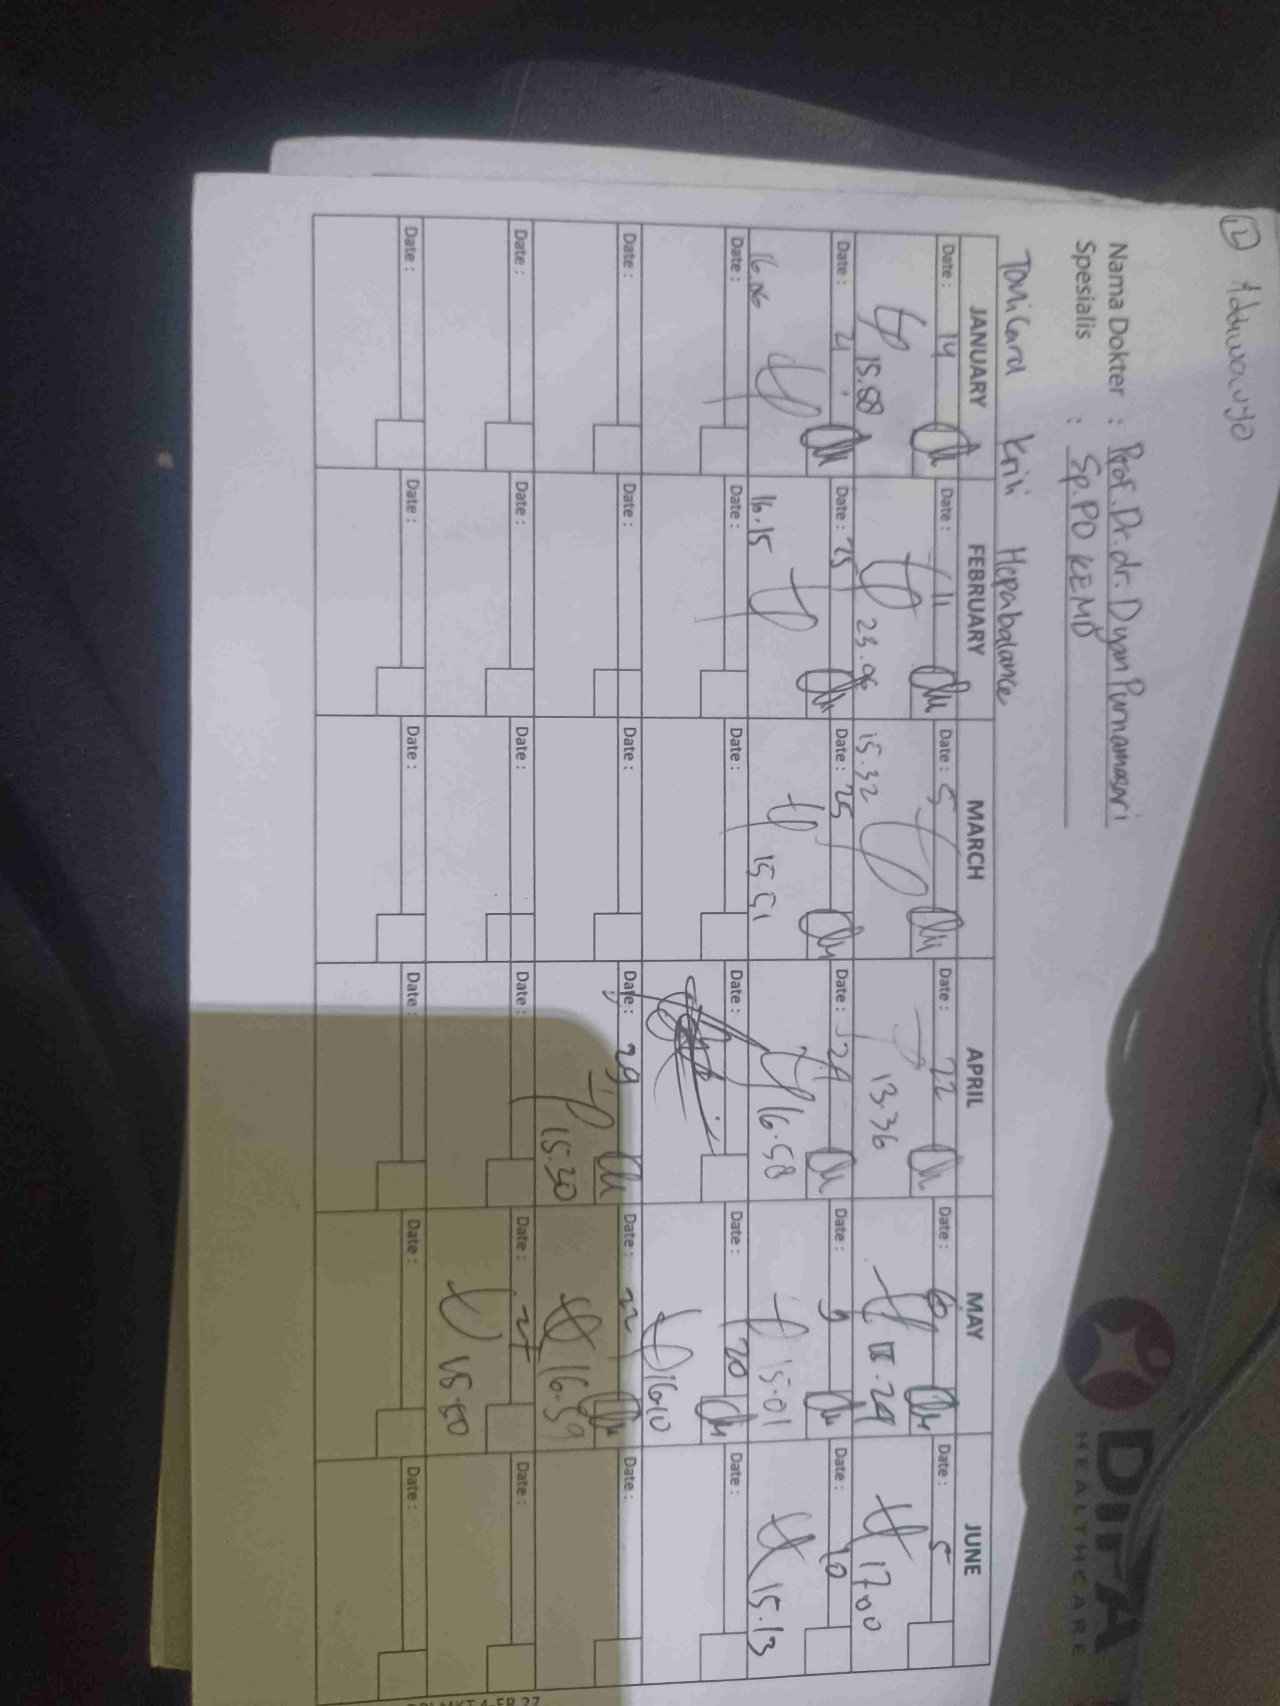 12 Adiwaluyo
Nama Dokter : Prof. Dr. dr. Dyan Purnamasari
Spesialis : Sp.PD KEMD
Kriti Hepabalance
DirA
HEALTHCARE
JANUARY FEBRUARY MARCH APRIL MAY JUNE
Date : 14 Date : 11 Date : 5 Date : 22 Date : 6 Date : 5
15.58 23.06 15.32 13.36 17.00
Date : 21 Date : 25 Date : 25 Date : 24 Date : 9 Date : 10
16.06 16.15 15.51 16.58 15.01 15.13
Date : Date : Date : Date : Date : 20 Date :
16.10
Date : Date : Date : Date : 29 Date : 22 Date :
15.30 16.59
Date : Date : Date : Date : Date : 27 Date :
15.50
Date : Date : Date : Date : Date : Date :